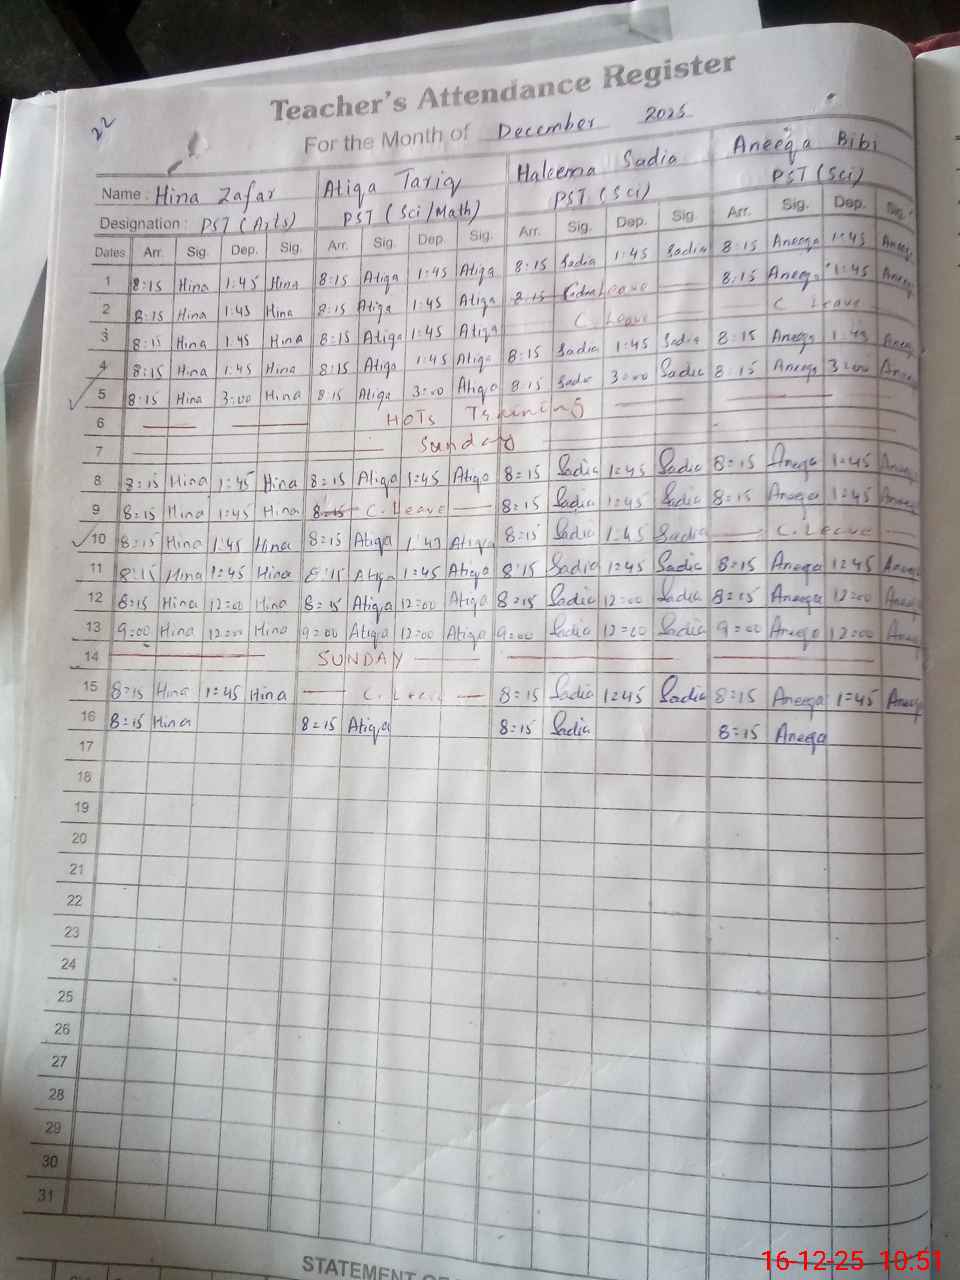 22
Teacher's Attendance Register
For the Month of December 2025
Name: Hina Zafar Atiqa Tariq Haleema Sadia Aneeqa Bibi
Designation: PST (Arts) PST (Sci/Math) PST (Sci) PST (Sci)
Dates Arr. Sig. Dep. Sig. Arr. Sig. Dep. Sig. Arr. Sig. Dep. Sig. Arr. Sig. Dep. Sig.
1 8:15 Hina 1:45 Hina 8:15 Atiqa 1:45 Atiqa 8:15 Sadia 1:45 Sadia 8:15 Aneeqa 1:45 Aneeq
2 8:15 Hina 1:45 Hina 8:15 Atiqa 1:45 Atiqa 8:15 Leave 8:15 Aneeqa 1:45 Aneeq
3 8:15 Hina 1:45 Hina 8:15 Atiqa 1:45 Atiqa C. Leave C. Leave
4 8:15 Hina 1:45 Hina 8:15 Atiqa 1:45 Atiqa 8:15 Sadia 1:45 Sadia 8:15 Aneeqa 1:45 Aneeq
5 8:15 Hina 3:00 Hina 8:15 Atiqa 3:00 Atiqa 8:15 Sadia 3:00 Sadia 8:15 Aneeqa 3:00 Aneeq
6 HOTs Training
7 Sunday
8 8:15 Hina 1:45 Hina 8:15 Atiqa 1:45 Atiqa 8:15 Sadia 1:45 Sadia 8:15 Aneeqa 1:45 Aneeq
9 8:15 Hina 1:45 Hina 8:15 C. Leave 8:15 Sadia 1:45 Sadia 8:15 Aneeqa 1:45 Aneeq
10 8:15 Hina 1:45 Hina 8:15 Atiqa 1:45 Atiqa 8:15 Sadia 1:45 Sadia C. Leave
11 8:15 Hina 1:45 Hina 8:15 Atiqa 1:45 Atiqa 8:15 Sadia 1:45 Sadia 8:15 Aneeqa 1:45 Aneeq
12 8:15 Hina 12:00 Hina 8:15 Atiqa 12:00 Atiqa 8:15 Sadia 12:00 Sadia 8:15 Aneeqa 12:00 Aneeq
13 9:00 Hina 12:00 Hina 9:00 Atiqa 12:00 Atiqa 9:00 Sadia 12:00 Sadia 9:00 Aneeqa 12:00 Aneeq
14 SUNDAY
15 8:15 Hina 1:45 Hina C. Leave 8:15 Sadia 1:45 Sadia 8:15 Aneeqa 1:45 Aneeq
16 8:15 Hina 8:15 Atiqa 8:15 Sadia 8:15 Aneeqa
17
18
19
20
21
22
23
24
25
26
27
28
29
30
31
STATEMENT
16-12-25 10:51